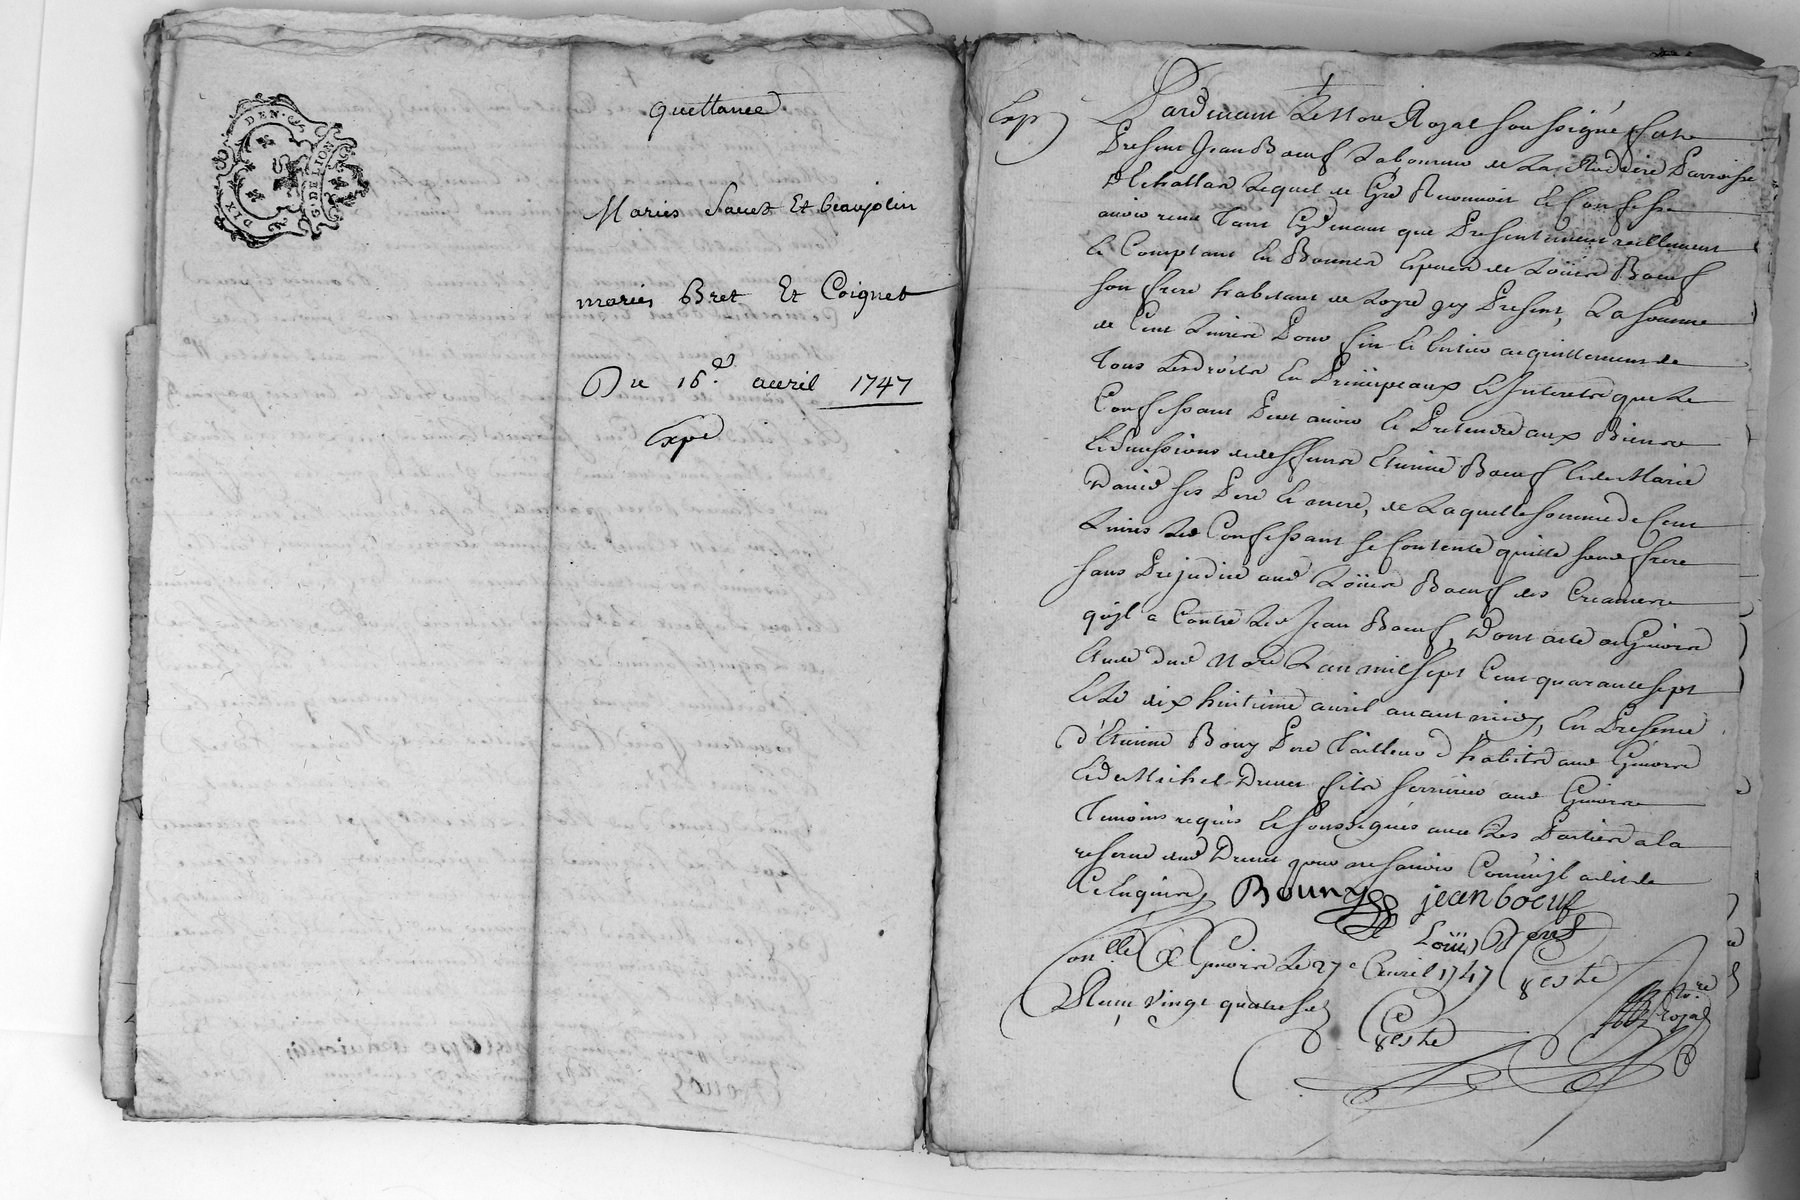 DIX DEN.
G. DE LION
quittance
Maries Sauet Et beaujolin
maries Bret Et Coignet
Du 16e. auril 1747
Expe
Exp.
Pardeuant Le Nore Royal Soussigné fut
Present Jean Boeuf Laboureur de La Rodiere Parroisse
d'Echallas Lequel de Gré Reconnoit et Confesse
auoir receu Tant Cydeuant que Presentement reellement
et Comptant En Bonnes Especes de Loüis Boeuf
son frere habitant de Loyre icy Present, La somme
de Cent Liures Pour fin et Entier acquittement de
Tous Les droits En Principeaux et Interets que Le
Confessant Peut auoir et Pretendre aux Biens
et Successions de deffunts Etienne Boeuf et de Marie
Dauid ses Pere et mere, de Laquelle somme de Cent
Liures Led Confessant se Contente quitte sond frere
sans Prejudice aud Loüis Boeuf des Creances
qu'jl a Contre Led Jean Boeuf, Dont acte a Giuors
Etude dud Nore L'an mil sept Cent quarante sept
et Le dix huitieme auril auant midy, En Presence
d'Etienne Bouny Pere Tailleur d'habits aud Giuors
et de Michel Druet fils serrurier aud Giuors
Temoins requis et soussignés auec Les Parties a la
reserue dud Druet pour ne sauoir Comme jl a dit de
Ce Enquis
Bouny jean boeuf
Loüis Beuf
Conlle a Giuors Le 27e auril 1747
Reçu vingt quatre s
Nore Royal